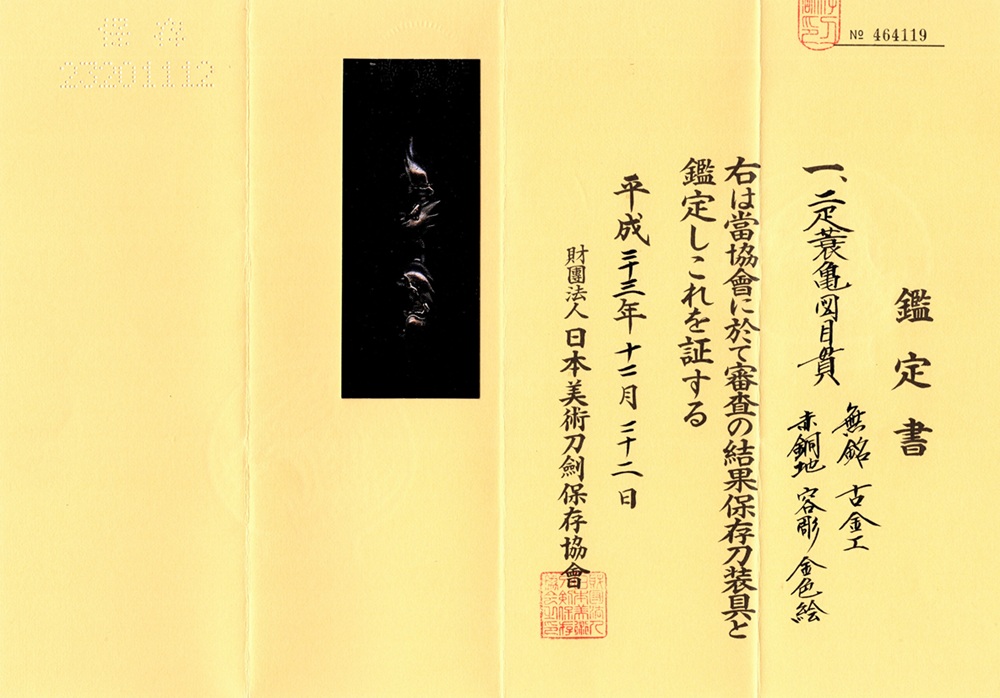 鑑定書
一、二疋蓑亀図目貫
無銘 古金工
赤銅地 容彫 金色絵
右は當協會に於て審査の結果保存刀装具と
鑑定しこれを証する
平成二十三年十二月二十二日
財團法人 日本美術刀劍保存協會
№ 464119
保存
23201112